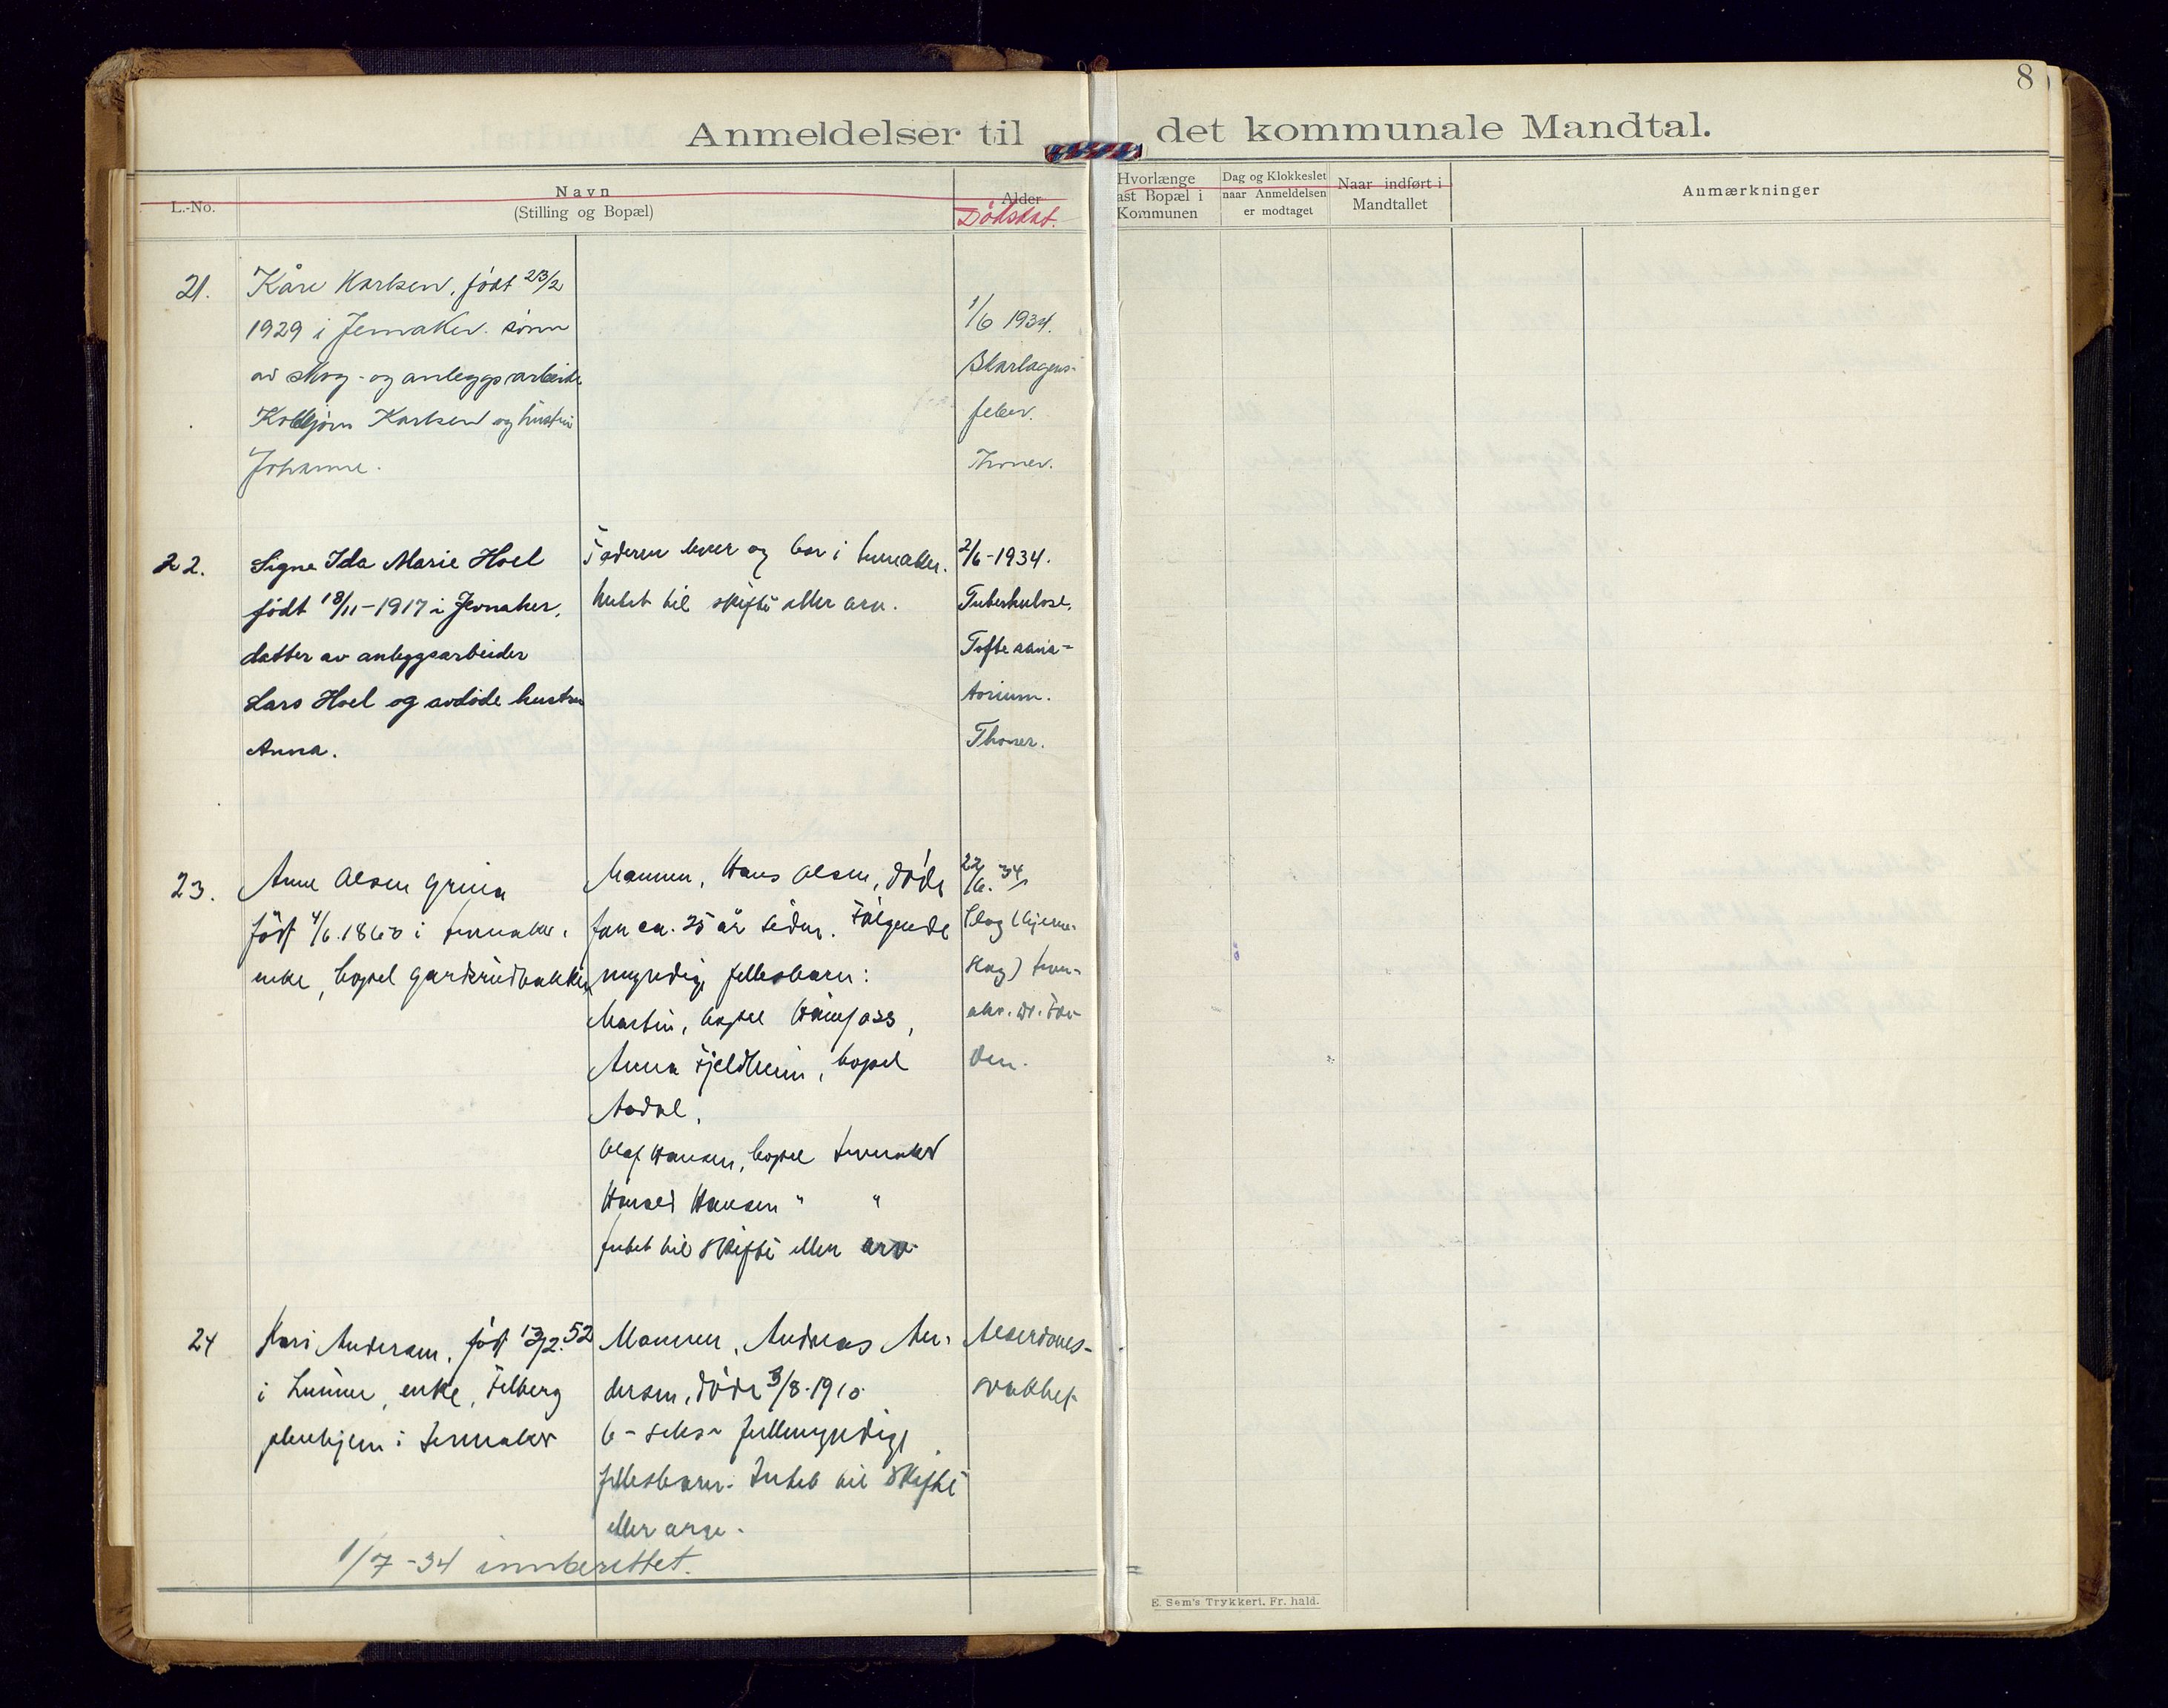 8
Anmeldelser til det kommunale Mandtal.
L.-No.
Navn
(Stilling og Bopæl)
Alder
Dödsdat.
Hvorlænge
ast Bopæl i
Kommunen
Dag og Klokkeslet
naar Anmeldelsen
er modtaget
Naar indført i
Mandtallet
Anmærkninger
21.
Kåre Karlsen, født 23/2
1929 i Jevnaker. sønn
av skog- og anleggsarbeider
Kolbjørn Karlsen og hustru
Johanne.
1/6 1934.
Skarlagens-
feber.
Thoner.
22.
Signe Ida Marie Hoel
født 18/11-1917 i Jevnaker,
datter av anleggsarbeider
Lars Hoel og avdøde hustru
Anna.
Faderen lever og bor i Jevnaker.
Intet til skifte eller arv.
2/6-1934.
Tuberkulose.
Tofte sana-
torium.
Thoner.
23.
Anne Olsen Grina
født 4/6.1860 i Jevnaker,
enke, bopel Gardsrudbakken
Mannen, Hans Olsen, døde
for ca. 25 år siden. Følgende
myndige fellesbarn:
Martin, bopel Hønefoss,
Anna Fjeldheim, bopel
Aadal,
Olaf Hansen, bopel Jevnaker
Harald Hansen " "
Intet til skifte eller arv.
22/6. 34
Slag (hjerne-
slag) Jevn-
aker. Dr.
24
Kari Andersen, født 13/2.52
i Lunner, enke, Felberg
pleiehjem i Jevnaker
Mannen, Andreas An-
dersen, døde 3/8.1910.
6 - seks - fullmyndige
fellesbarn. Intet til skifte
eller arv.
Alderdoms-
svakhet
1/7-34 innberettet.
E. Sem's Trykkeri. Fr.hald.